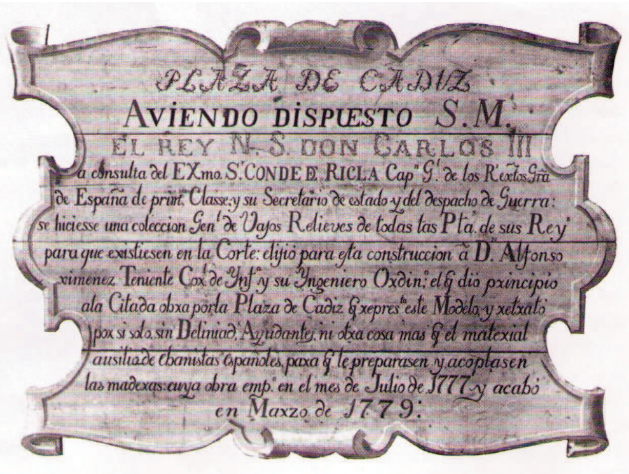 PLAZA DE CADIZ
AVIENDO DISPUESTO S.M.
EL REY N. S. DON CARLOS III
a consulta del EXmo. Sr. CONDE DE RICLA Capn. Gl. de los Rextos. Grã
de España de primr. Classe; y su Secretario de estado y del despacho de Guerra:
se hiciesse una coleccion Genl. de Vajos Relieves de todas las Plas. de sus Reys.
para que existiesen en la Corte: elijió para esta construccion â Dn. Alfonso
ximenez Teniente Coxl. de Ynfa. y su Yngeniero Oxdino. el q̃ dio pxincipio
ala Citada obxa poxla Plaza de Cadiz q̃ xepresta. este Modelo, y xetxató
pox si solo, sin Deliniads. Ayudantes, ni otxa cosa mas q̃ el matexial
ausilio de ebanistas españoles, paxa q̃ le preparasen y acoplasen
las madexas: cuya obra empo. en el mes de Julio de 1777 y acabó
en Maxzo de 1779: